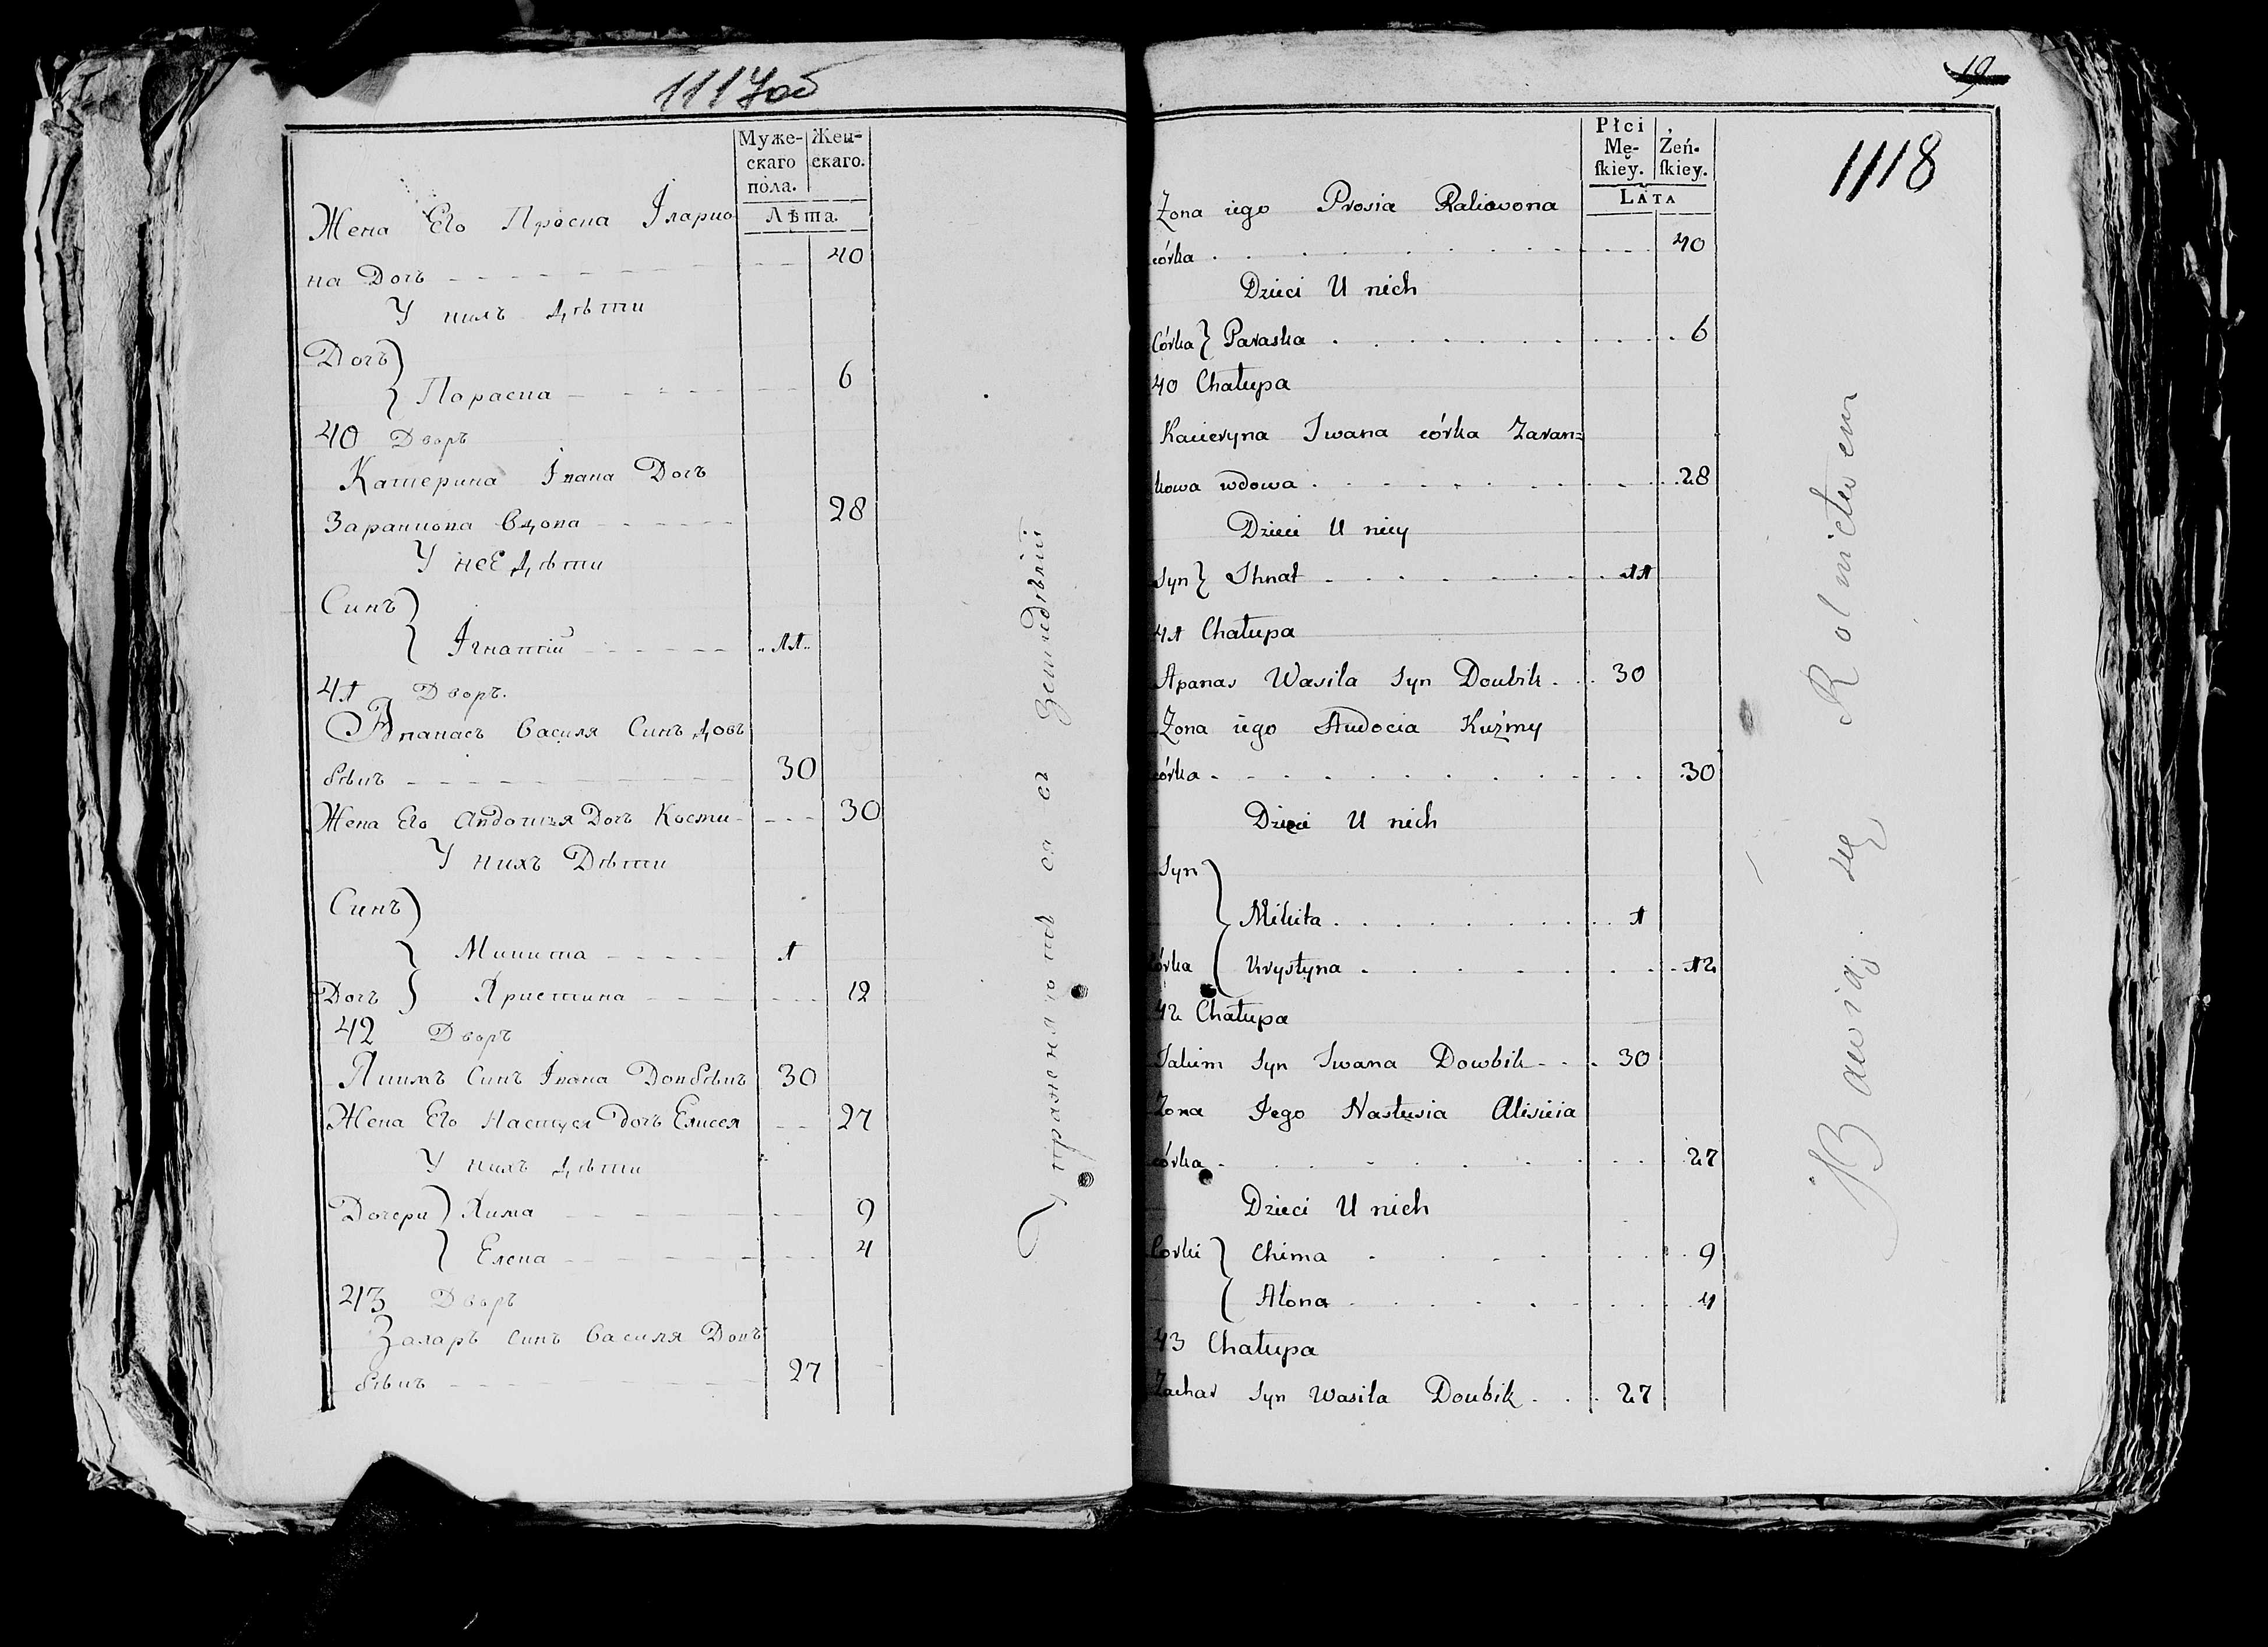 1117об
Муже-
скаго
пола.
Жен-
скаго.
Лѣта.
Жена Его Просиа Іларио
на Дочъ 40
У нихъ Дѣти
Дочъ
Параска 6
40 Дворъ
Катерина Івана Дочъ
Заранкова Вдова 28
У неЕ Дѣти
Синъ
Ігнатій 11
41 Дворъ.
Апанасъ Василя Синъ Довъ
бѣкъ 30
Жена Его Авдотия Дочъ Косми 30
У нихъ Дѣти
Синъ
Микита 1
Дочъ Христина 12
42 Дворъ
Якимъ Синъ Івана Довбѣкъ 30
Жена Его Настуся Дочъ Елисея 27
У нихъ Дѣти
Дочери Хима 9
Елена 4
43 Дворъ
Захаръ Синъ Василя Довъ
бѣкъ 27
Упражняютъ ся съ Земледѣлій
19
1118
Płci
Mę-
ſkiey.
Żeń-
ſkiey.
LATA
Zona iego Prosia Raliowona
córka 40
Dzieci U nich
Córka Paraska 6
40 Chałupa
Kacieryna Iwana córka Zaran=
kowa wdowa 28
Dzieci U niey
Syn Ihnat 11
41 Chałupa
Apanas Wasila Syn Doubik 30
Zona iego Audocia Kuźmy
córka 30
Dzieci U nich
Syn
Mikita 1
córka Krystyna 12
42 Chałupa
Jakim Syn Iwana Dowbik 30
Zona Jego Nastusia Alisieia
córka 27
Dzieci U nich
Corki Chima 9
Alona 4
43 Chałupa
Zachar Syn Wasila Doubik 27
Bawią się Rolnictwem